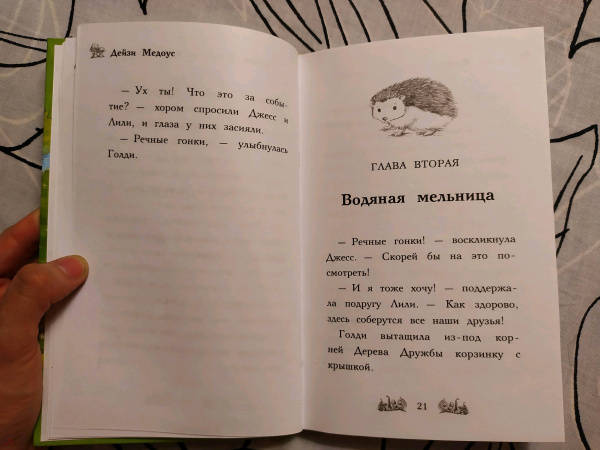 Дейзи Медоус
— Ух ты! Что это за собы-
тие? — хором спросили Джесс и
Лили, и глаза у них засияли.
— Речные гонки, — улыбнулась
Голди.
ГЛАВА ВТОРАЯ
Водяная мельница
— Речные гонки! — воскликнула
Джесс. — Скорей бы на это по-
смотреть!
— И я тоже хочу! — поддержа-
ла подругу Лили. — Как здорово,
здесь соберутся все наши друзья!
Голди вытащила из-под кор-
ней Дерева Дружбы корзинку с
крышкой.
21